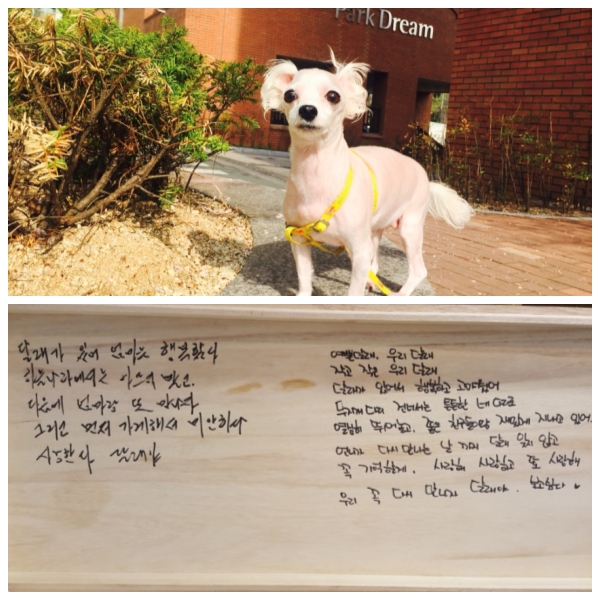 Park Dream
달래가 있어 엄마는 행복했어
하늘나라에서는 아프지 말고.
다음에 엄마랑 또 만나자
그리고 먼저 가게해서 미안하다
사랑한다 달래야
예쁜달래, 우리 달래
작고 작은 우리 달래
달래가 있어서 행복했고 고마웠어
무지개다리 건너서는 튼튼한 네 다리로
열심히 뛰어놀고, 좋은 친구들이랑 재밌게 지내고 있어.
언니가 다시 만나는 날 까지 달래 잊지 않고
꼭 기억할게. 사랑해 사랑하고 또 사랑해
우리 꼭 다시 만나자 달래야. 보고싶다 ♥